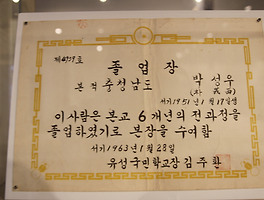 졸업장
본적 충청남도
박성우
서기1951년1월17일생
이 사람은 본교 6개년의 전과정을
졸업하였기로 본장을 수여함
서기1963년1월28일
유성국민학교장 김주환